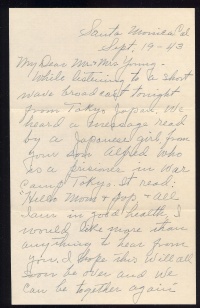 Santa Monica Cal
Sept. 19-43
My Dear Mr & Mrs Young-
While listening to a short
wave broadcast tonight
from Tokyo Japan. We
heard a message read
by a Japanese girl from
your son Alfred who
is a prisoner in War
Camp Tokyo. It read:
"Hello Mom & Pop & all
I am in good health, I
would like more than
anything to hear from
you. I hope this will all
soon be over and we
can be together again"